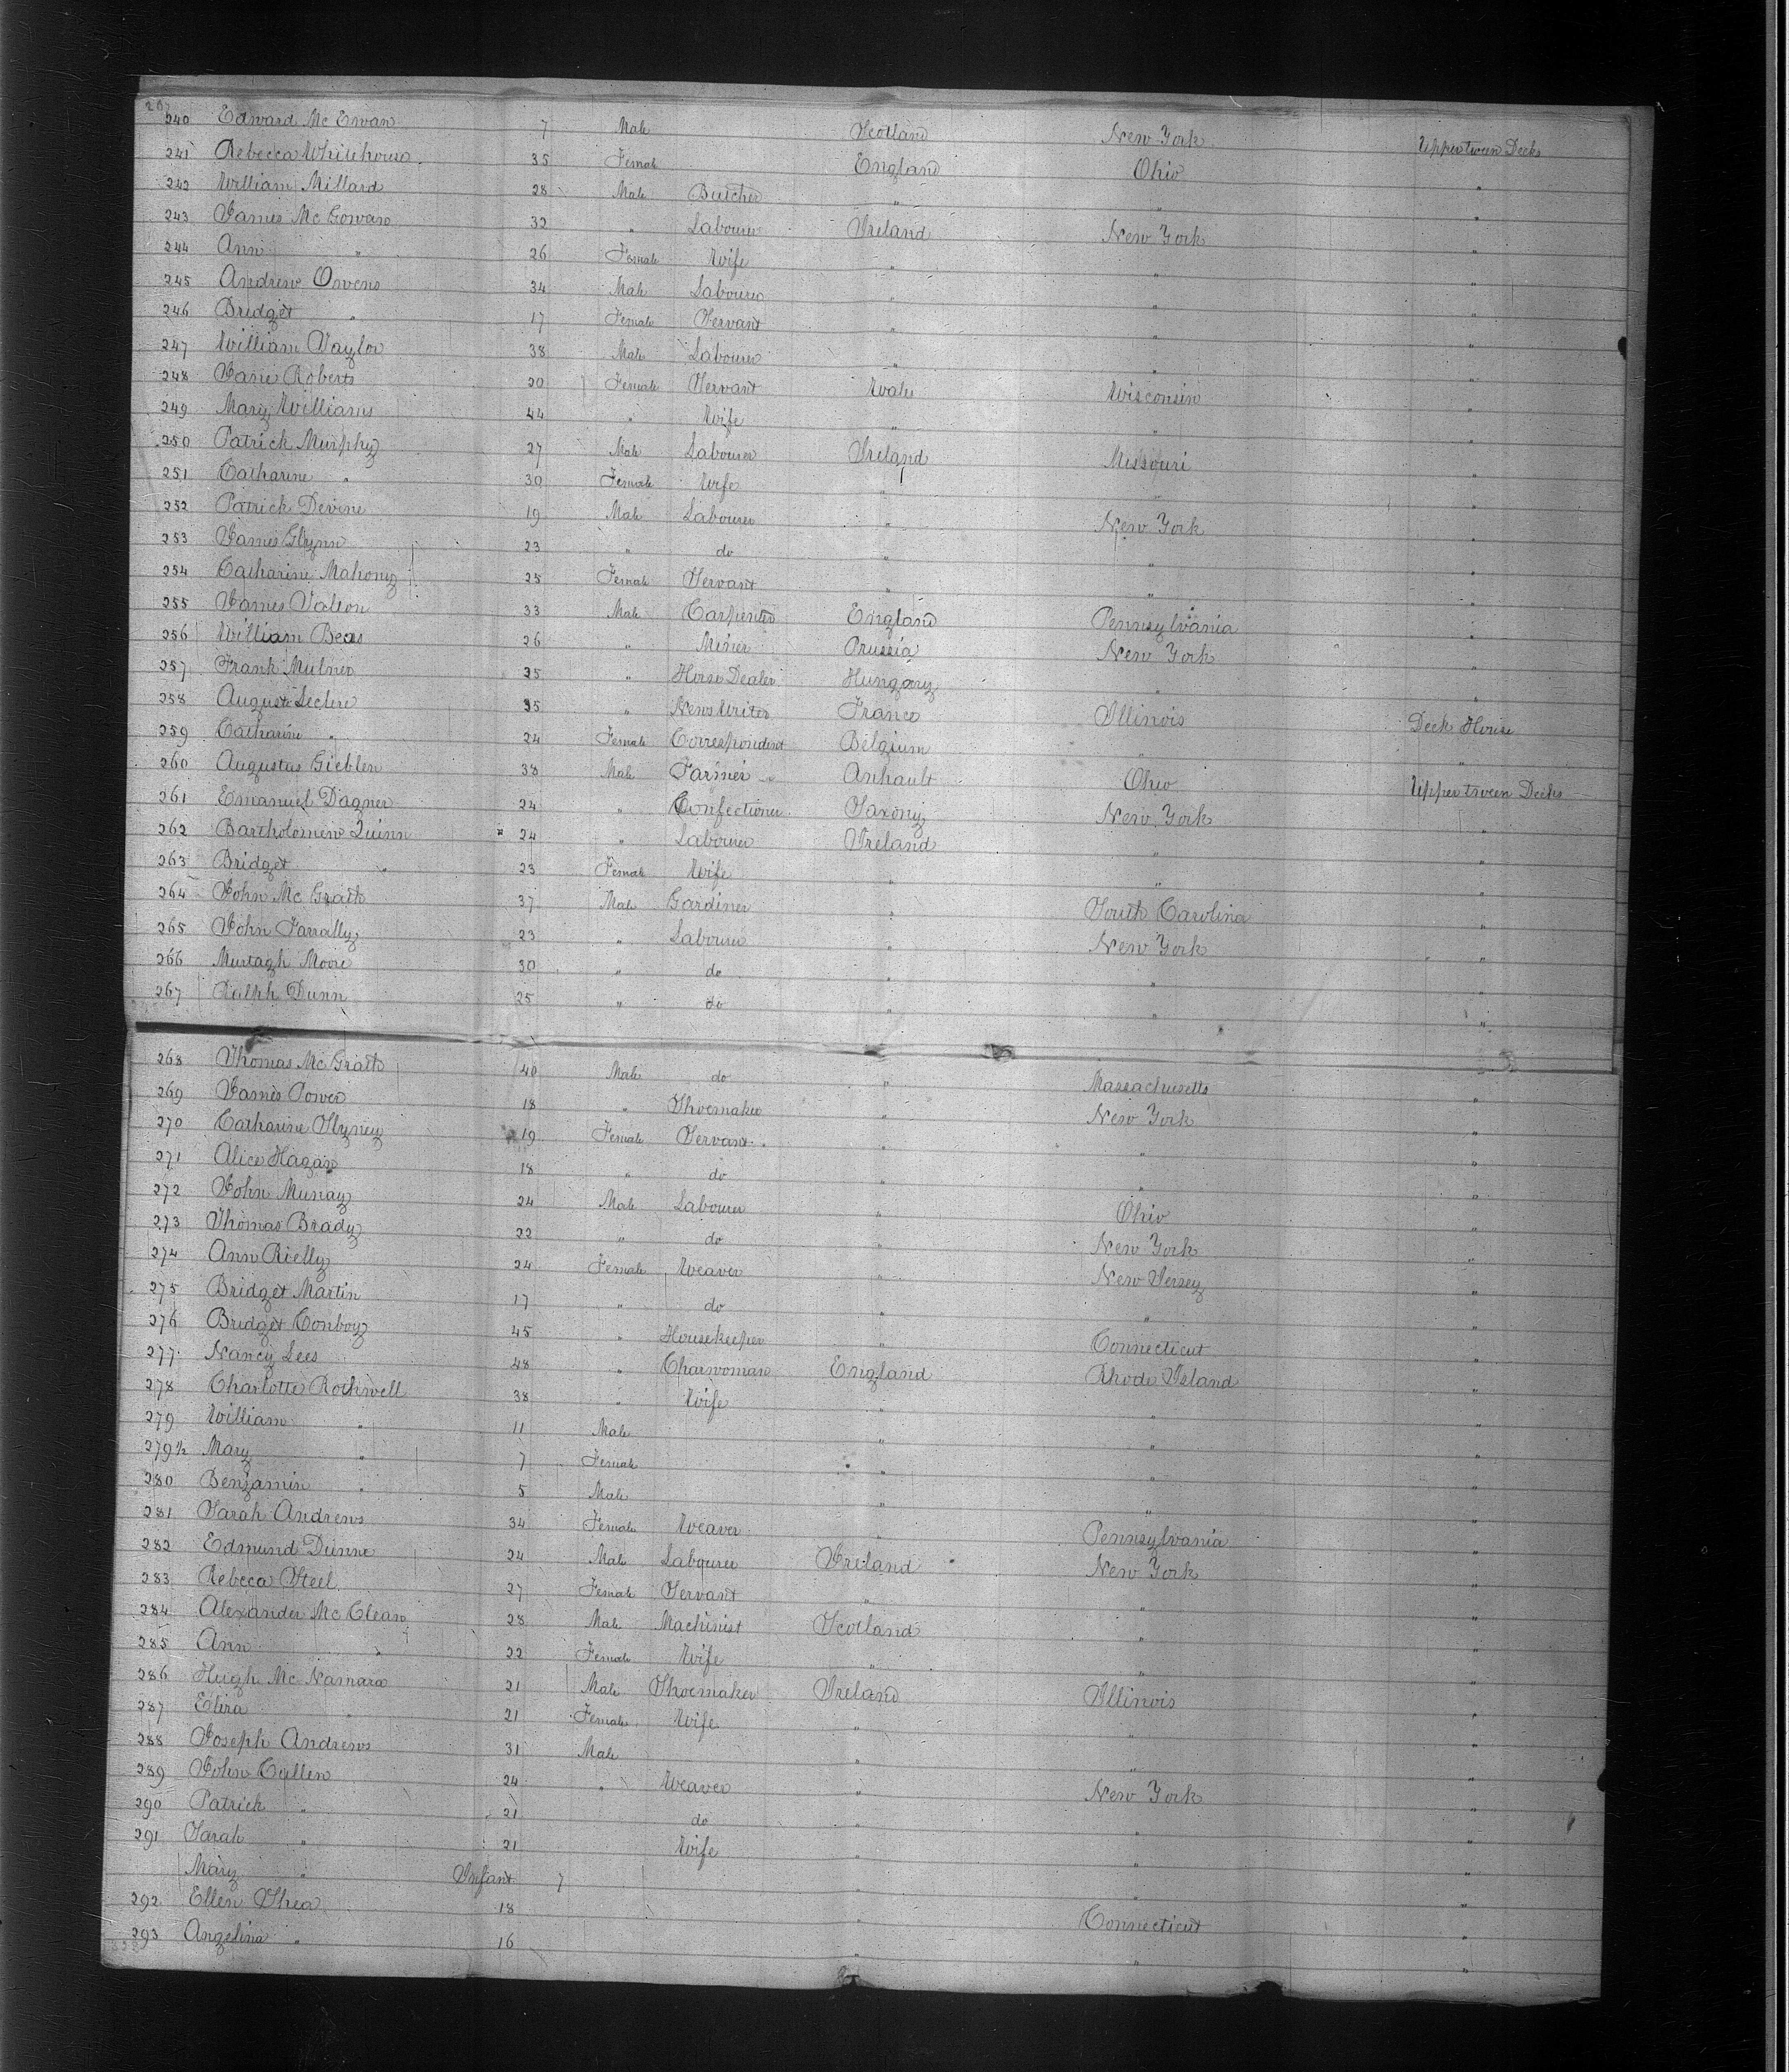 240 Edward Mc Ewan 7 Male Scotland New York Upper tween Decks
241 Rebecca Whitehouse 35 Female England Ohio "
242 William Millard 28 Male Butcher " " "
243 James Mc Gowan 32 " Labourer Ireland New York "
244 Ann " 26 Female Wife " " "
245 Andrew Owens 34 Male Labourer " " "
246 Bridget " 17 Female Servant " " "
247 William Taylor 38 Male Labourer " " "
248 Jane Roberts 20 Female Servant Wales Wisconsin "
249 Mary Williams 44 " Wife " " "
250 Patrick Murphy 27 Male Labourer Ireland Missouri "
251 Catharine " 30 Female Wife " " "
252 Patrick Devine 19 Male Labourer " New York "
253 James Glynn 23 " do " " "
254 Catharine Mahony 25 Female Servant " " "
255 James 33 Male Carpenter England Pennsylvania "
256 William Beas 26 " Miner Prussia New York "
257 Frank Mulner 25 " Horse Dealer Hungary " "
258 Auguste Leclere 35 " News Writer France Illinois Deck House
259 Catharine " 24 Female Correspondent Belgium " "
260 Augustus Gieblen 38 Male Farmer Anhault Ohio Upper tween Decks
261 Emanuel Dagner 24 " Confectioner Saxony New York "
262 Bartholomew Quinn 24 " Labourer Ireland " "
263 Bridget " 23 Female Wife " " "
264 John Mc Grath 37 Male Gardiner " South Carolina "
265 John Farrally 23 " Labourer " New York "
266 Murtagh Moore 30 " do " " "
267 Ralph Dunn 25 " do " " "
268 Thomas Mc Grath 40 Male do " Massachusetts "
269 James Power 18 " Shoemaker " New York "
270 Catharine 19 Female Servant " " "
271 Alice Hagan 18 " do " " "
272 John Murray 24 Male Labourer " Ohio "
273 Thomas Brady 22 " do " New York "
274 Ann Rielly 24 Female Weaver " New Jersey "
275 Bridget Martin 17 " do " " "
276 Bridget Conboy 45 " Housekeeper " Connecticut "
277 Nancy Lees 48 " Charwoman England Rhode Island "
278 Charlotte Rothwell 38 " Wife " " "
279 William " 11 Male " " "
279½ Mary " 7 Female " " "
280 Benjamin " 5 Male " " "
281 Sarah Andrews 34 Female Weaver " Pennsylvania "
282 Edmund Dunne 24 Male Labourer Ireland New York "
283 Rebeca Steel 27 Female Servant " " "
284 Alexander Mc Clean 28 Male Machinist Scotland " "
285 Ann " 22 Female Wife " " "
286 Hugh Mc Namara 21 Male Shoemaker Ireland Illinois "
287 Eliza " 21 Female Wife " " "
288 Joseph Andrews 31 Male " " "
289 John Cullen 24 " Weaver " New York "
290 Patrick " 21 do " " "
291 Sarah " 21 Wife " " "
Mary " Infant " " "
292 Ellen Shea 18 " Connecticut "
293 Angelina " 16 " " "